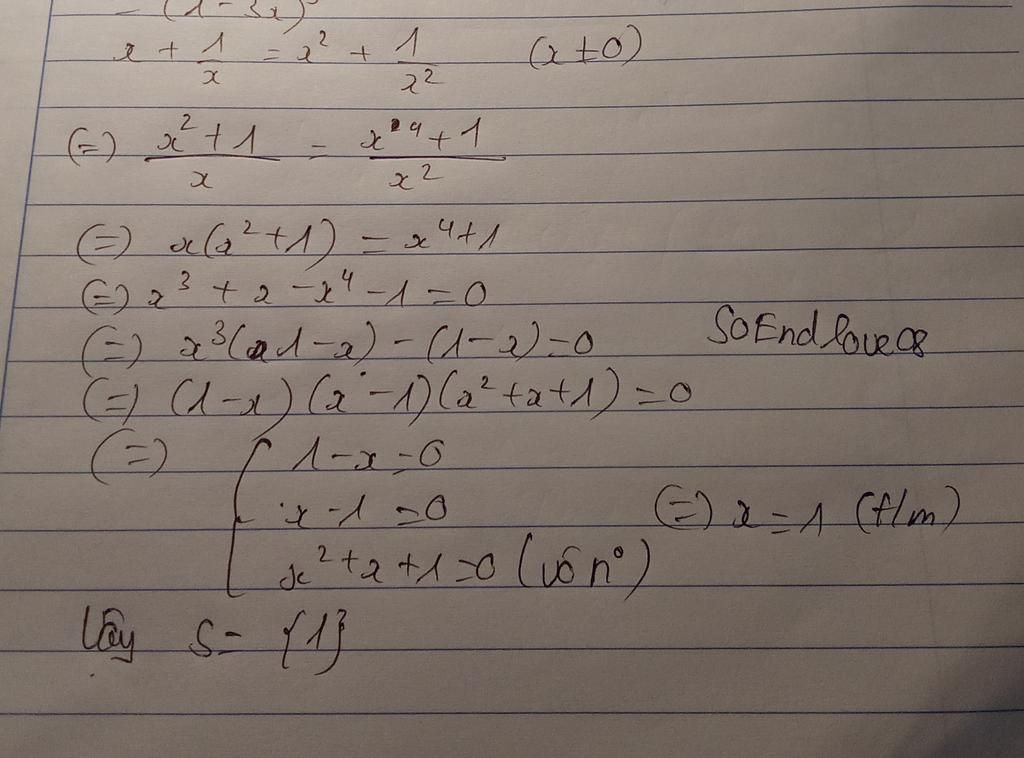 = (1-3x)
x + 1/x = x² + 1/x² (x ≠ 0)
(=) x²+1/x = x⁴+1/x²
(=) x(x²+1) = x⁴+1
(=) x³ + x - x⁴ - 1 = 0
(=) x³(1-x) - (1-x) = 0
SoEndlove08
(=) (1-x)(x-1)(x²+x+1) = 0
(=) [ 1-x = 0
x-1 = 0 (=) x = 1 (t/m)
x²+x+1=0 (vô n°)
Vậy S = {1}